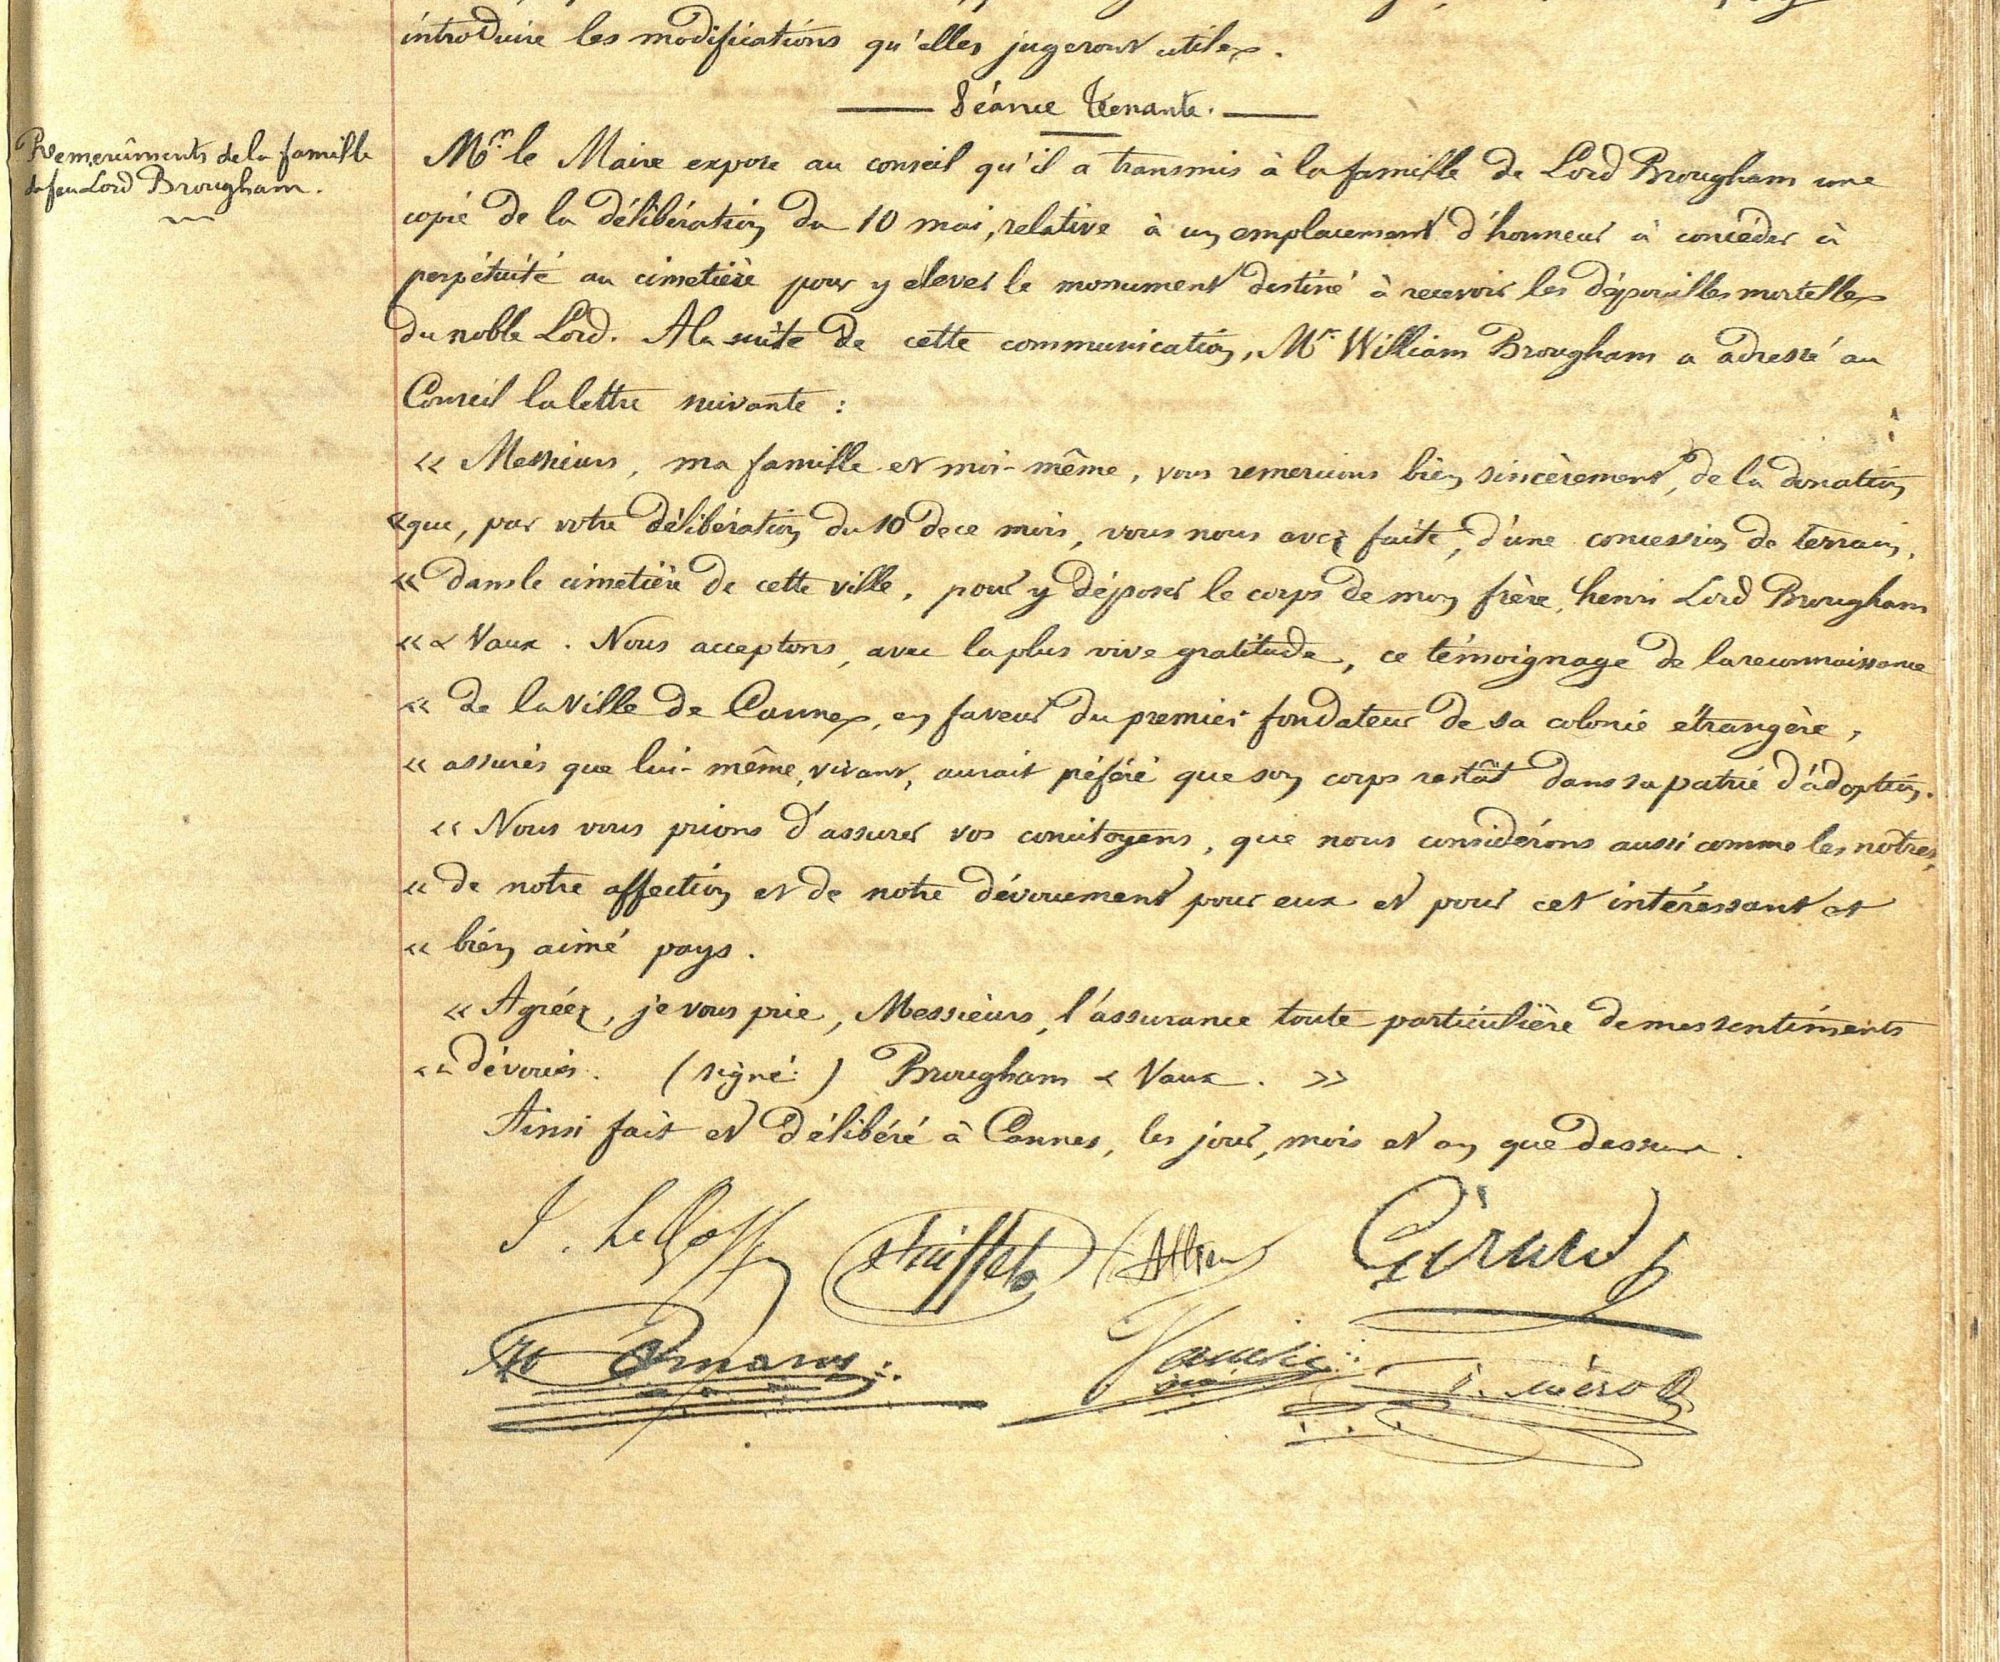 introduire les modifications qu'elles jugeront utiles.
Séance tenante.
Remerciments de la famille
de feu Lord Brougham.
Mr. le Maire expose au conseil qu'il a transmis à la famille de Lord Brougham une
copie de la délibération du 10 mai, relative à un emplacement d'honneur à concéder à
perpétuité au cimetière pour y élever le monument destiné à recevoir les dépouilles mortelles
du noble Lord. A la suite de cette communication, Mr. William Brougham a adressé au
Conseil la lettre suivante :
« Messieurs, ma famille et moi-même, vous remercions bien sincèrement, de la donation
« que, par votre délibération du 10 de ce mois, vous nous avez faite, d'une concession de terrain,
« dans le cimetière de cette ville, pour y déposer le corps de mon frère, henri Lord Brougham
« & Vaux. Nous acceptons, avec la plus vive gratitude, ce témoignage de la reconnaissance
« de la ville de Cannes, en faveur du premier fondateur de sa colonie étrangère,
« assurés que lui-même, vivant, aurait préféré que son corps restât dans sa patrie d'adoption.
« Nous vous prions d'assurer vos concitoyens, que nous considérons aussi comme les notres,
« de notre affection et de notre dévouement pour eux et pour cet intéressant et
« bien aimé pays.
« Agréez, je vous prie, Messieurs, l'assurance toute particulière de mes sentiments
« dévoués. (signé:) Brougham & Vaux. »
Ainsi fait et délibéré à Cannes, les jour, mois et an que dessus.
Girard